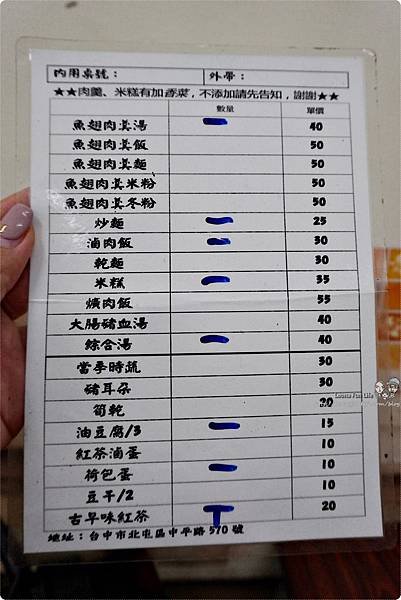 內用桌號： 外帶：
★★肉羹、米糕有加香菜，不添加請先告知，謝謝★★
數量 單價
魚翅肉羹湯 一 40
魚翅肉羹飯 50
魚翅肉羹麵 50
魚翅肉羹米粉 50
魚翅肉羹冬粉 50
炒麵 一 25
滷肉飯 一 30
乾麵 30
米糕 一 35
爌肉飯 55
大腸豬血湯 40
綜合湯 一 40
當季時蔬 30
豬耳朵 30
筍乾 20
油豆腐/3 一 15
紅茶滷蛋 10
荷包蛋 一 10
豆干/2 10
古早味紅茶 T 20
地址：台中市北屯區中平路570號